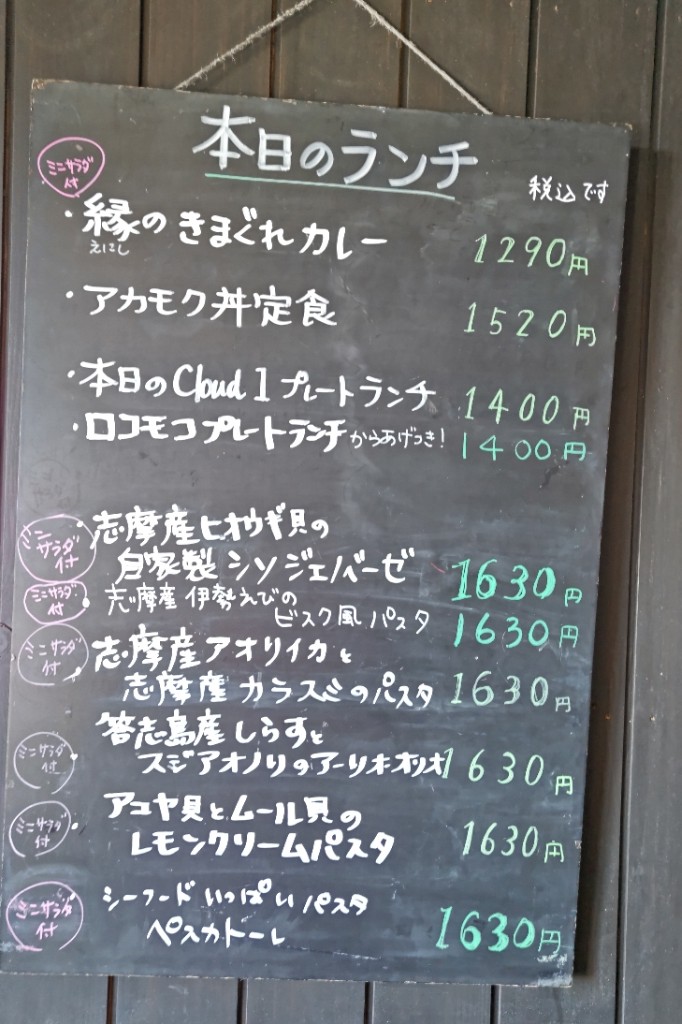 本日のランチ
税込です
ミニサラダ
付
・縁のきまぐれカレー 1290円
えにし
・アカモク丼定食 1520円
・本日のCloud 1 プレートランチ 1400円
・ロコモコプレートランチ からあげつき! 1400円
ミニ
サラダ
付
・志摩産ヒオウギ貝の
自家製シソジェノバーゼ 1630円
ミニサラダ
付
・志摩産 伊勢えびの
ビスク風パスタ 1630円
ミニサラダ
付
・志摩産アオリイカと
志摩産カラスミのパスタ 1630円
ミニサラダ
付
・答志島産しらすと
スジアオノリのアーリオオリオ 1630円
ミニサラダ
付
・アコヤ貝とムール貝の
レモンクリームパスタ 1630円
ミニサラダ
付
シーフードいっぱいパスタ
ペスカトーレ 1630円